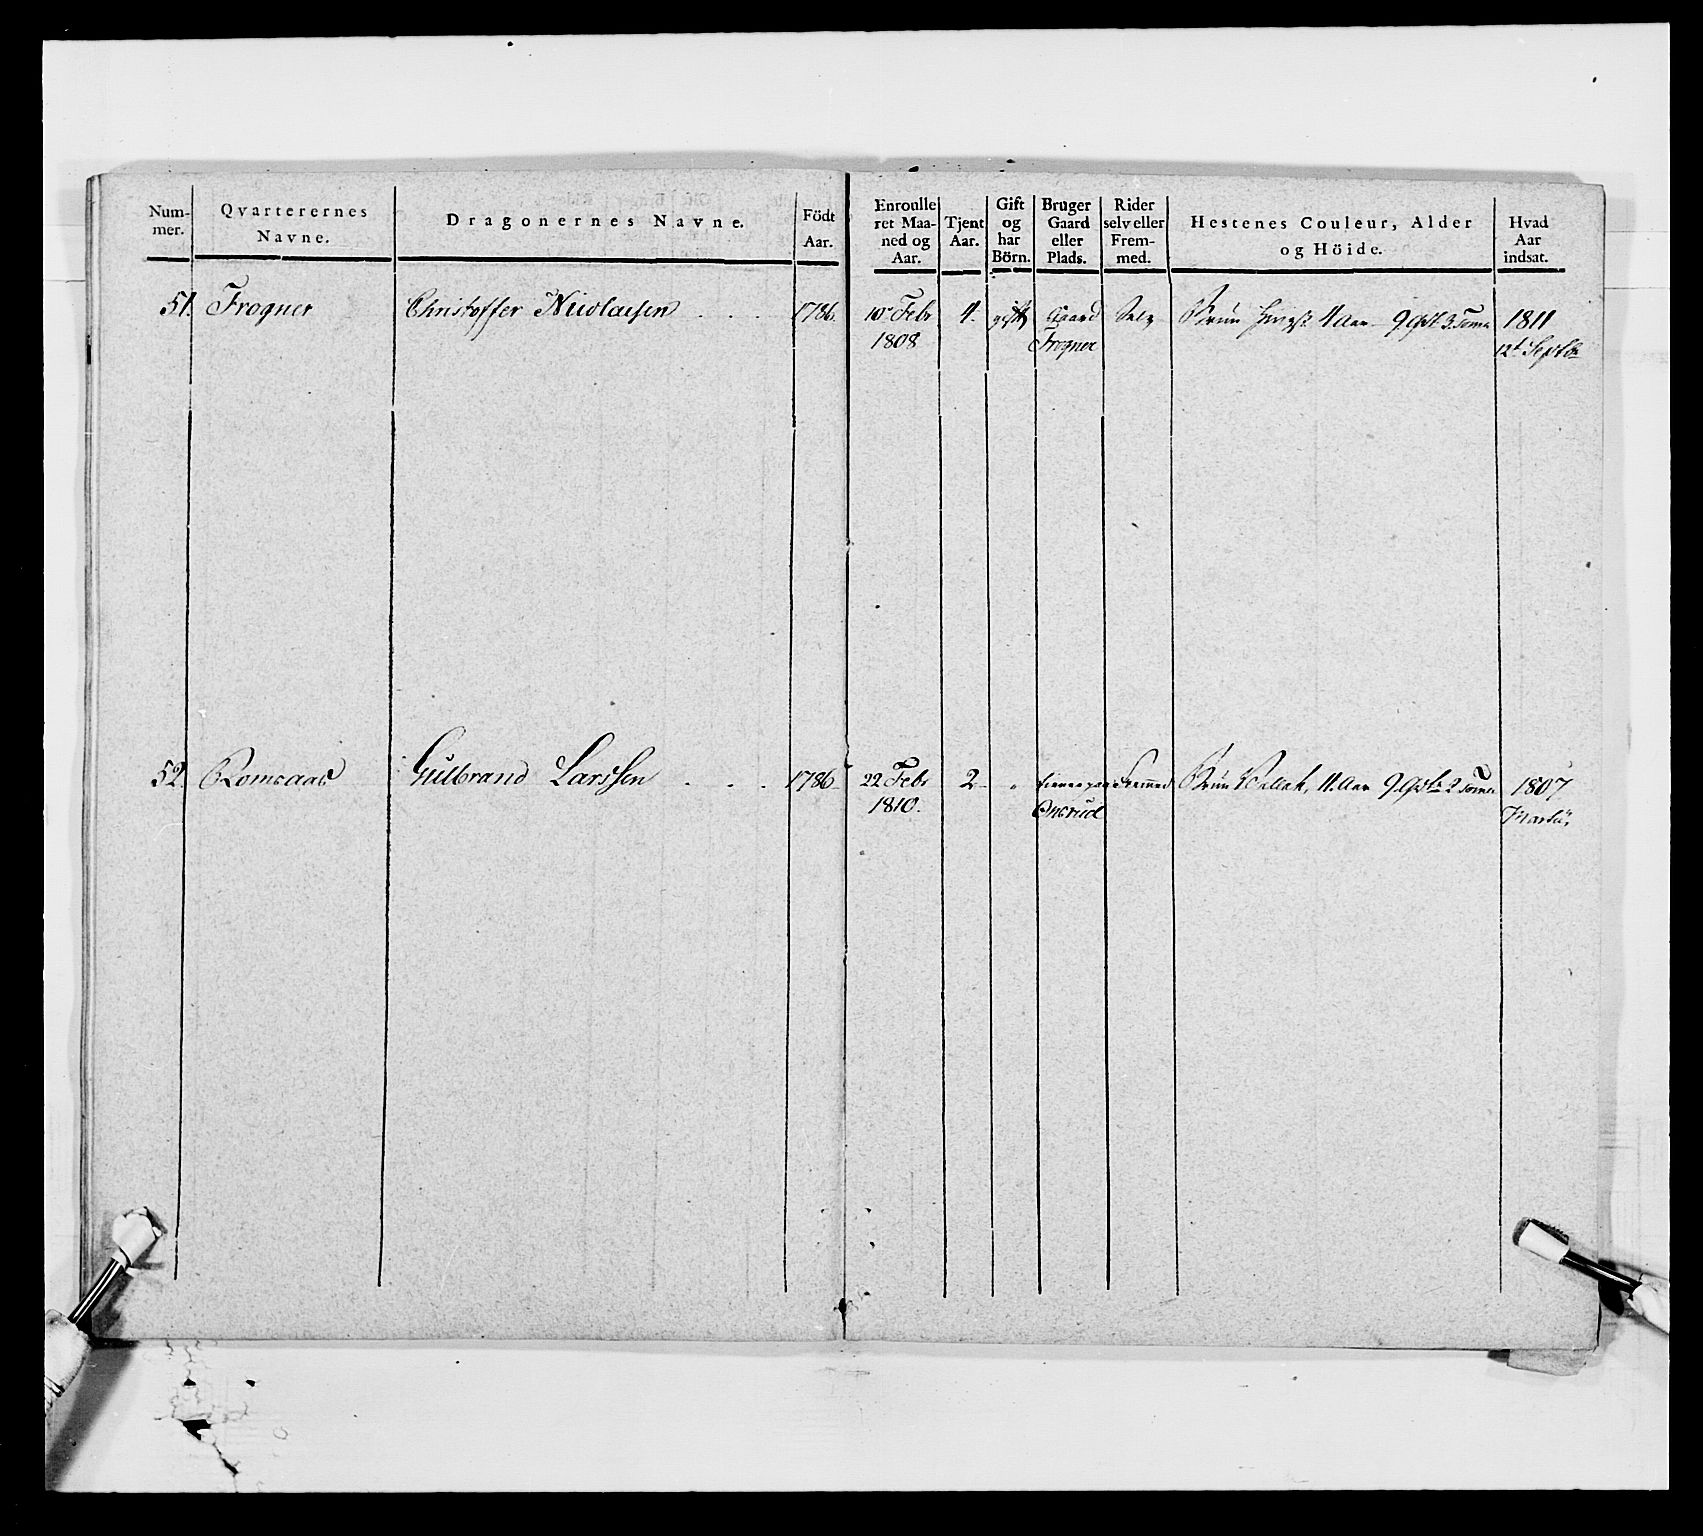 Num-
mer.
Qvarterernes
Navne.
Dragonernes Navne.
Födt
Aar.
Enroulle
ret Maa-
ned og
Aar.
Tjent
Aar.
Gift
og
har
Börn.
Bruger
Gaard
eller
Plads.
Rider
selv eller
Frem-
med.
Hestenes Couleur, Alder
og Höide.
Hvad
Aar
indsat.
51. Frogner Christoffer Nicolaisen . . . 1786. 10 Febr 4. gift Gaard Selv Bruun Hingst 4 Aar 9 Qvt 3 Tome 1811
1808 Frogner 12t Septbr
52. Romsaas Gulbrand Larssen . . . 1786. 22 Febr 2. " tiener paa Fremmed Bruun Vallak, 11 Aar 9 Qvt 2 Tome 1807
1810. Onsrud Martii